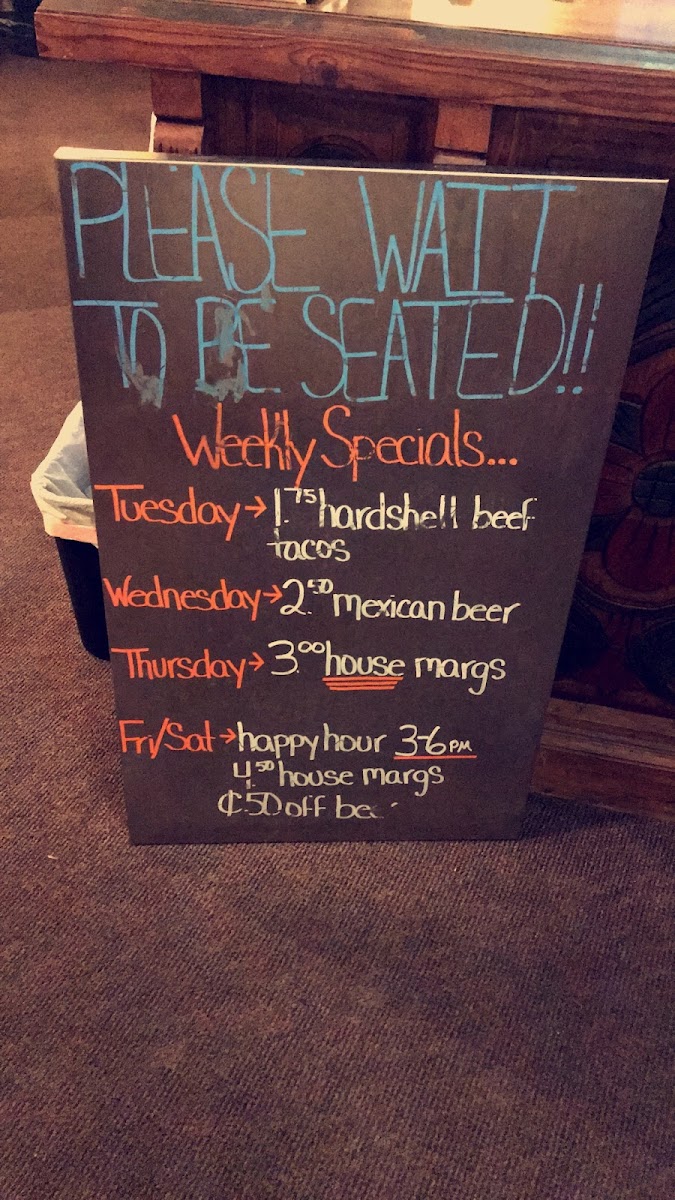 PLEASE WAIT
TO BE SEATED!!
Weekly Specials...
Tuesday → 1.75 hardshell beef
tacos
Wednesday → 2.50 mexican beer
Thursday → 3.00 house margs
Fri/Sat → happy hour 3-6PM
4.50 house margs
¢50 off